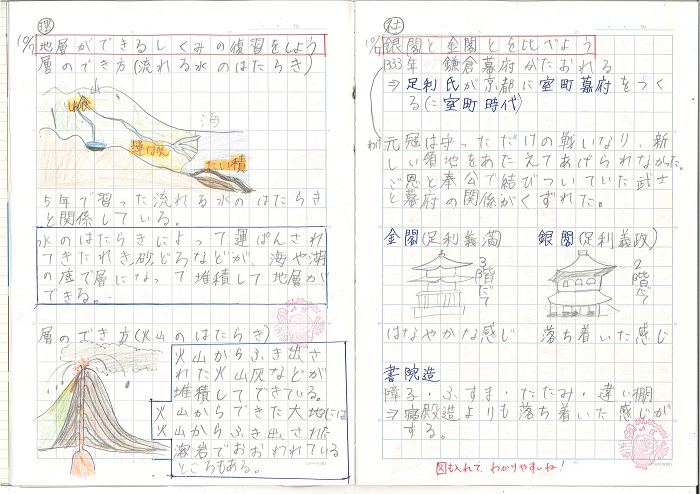 理
10/7 地層ができるしくみの復習をしよう
層のでき方(流れる水のはたらき)
山
海
しん食
運ぱん
たい積
5年で習った流れる水のはたらき
と関係している。
水のはたらきによって運ぱんされ
てきたれき砂どろなどが、海や湖
の底で層になって堆積して地層が
できる。
層のでき方(火山のはたらき)
火山からふき出さ
れた火山灰などが
堆積してできている。
火山からできた大地には
火山からふき出された
溶岩でおおわれている
ところもある。
社
10/7 銀閣と金閣とを比べよう
1333年 鎌倉幕府がたおれる
⇒足利氏が京都に室町幕府をつく
る(に室町時代)
元寇は守っただけの戦いなり、新
しい領地をあたえてあげられなかった。
ご恩と奉公で結びついていた武士
と幕府の関係がくずれた。
金閣(足利義満) 銀閣(足利義政)
3階だて
2階だて
はなやかな感じ 落ち着いた感じ
書院造
障子・ふすま・たたみ・違い棚
⇒寝殿造よりも落ち着いた感じが
する。
図も入れて、わかりやすいね!